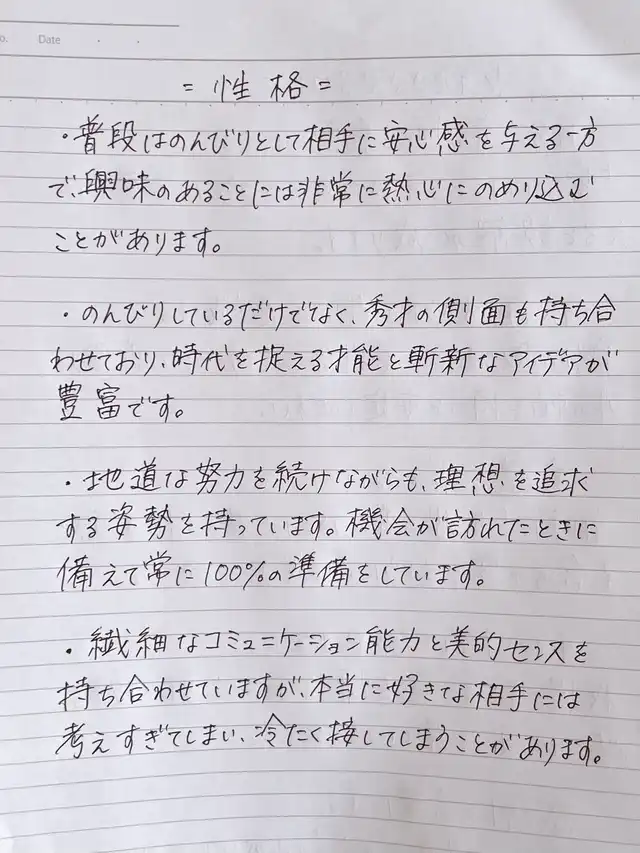 o. Date
= 性格 =
・普段はのんびりとして相手に安心感を与える一方
で、興味のあることには非常に熱心にのめり込む
ことがあります。
・のんびりしているだけでなく、秀才の側面も持ち合
わせており、時代を捉える才能と斬新なアイデアが
豊富です。
・地道な努力を続けながらも、理想を追求
する姿勢を持っています。機会が訪れたときに
備えて常に100%の準備をしています。
・繊細なコミュニケーション能力と美的センスを
持ち合わせていますが、本当に好きな相手には
考えすぎてしまい、冷たく接してしまうことがあります。